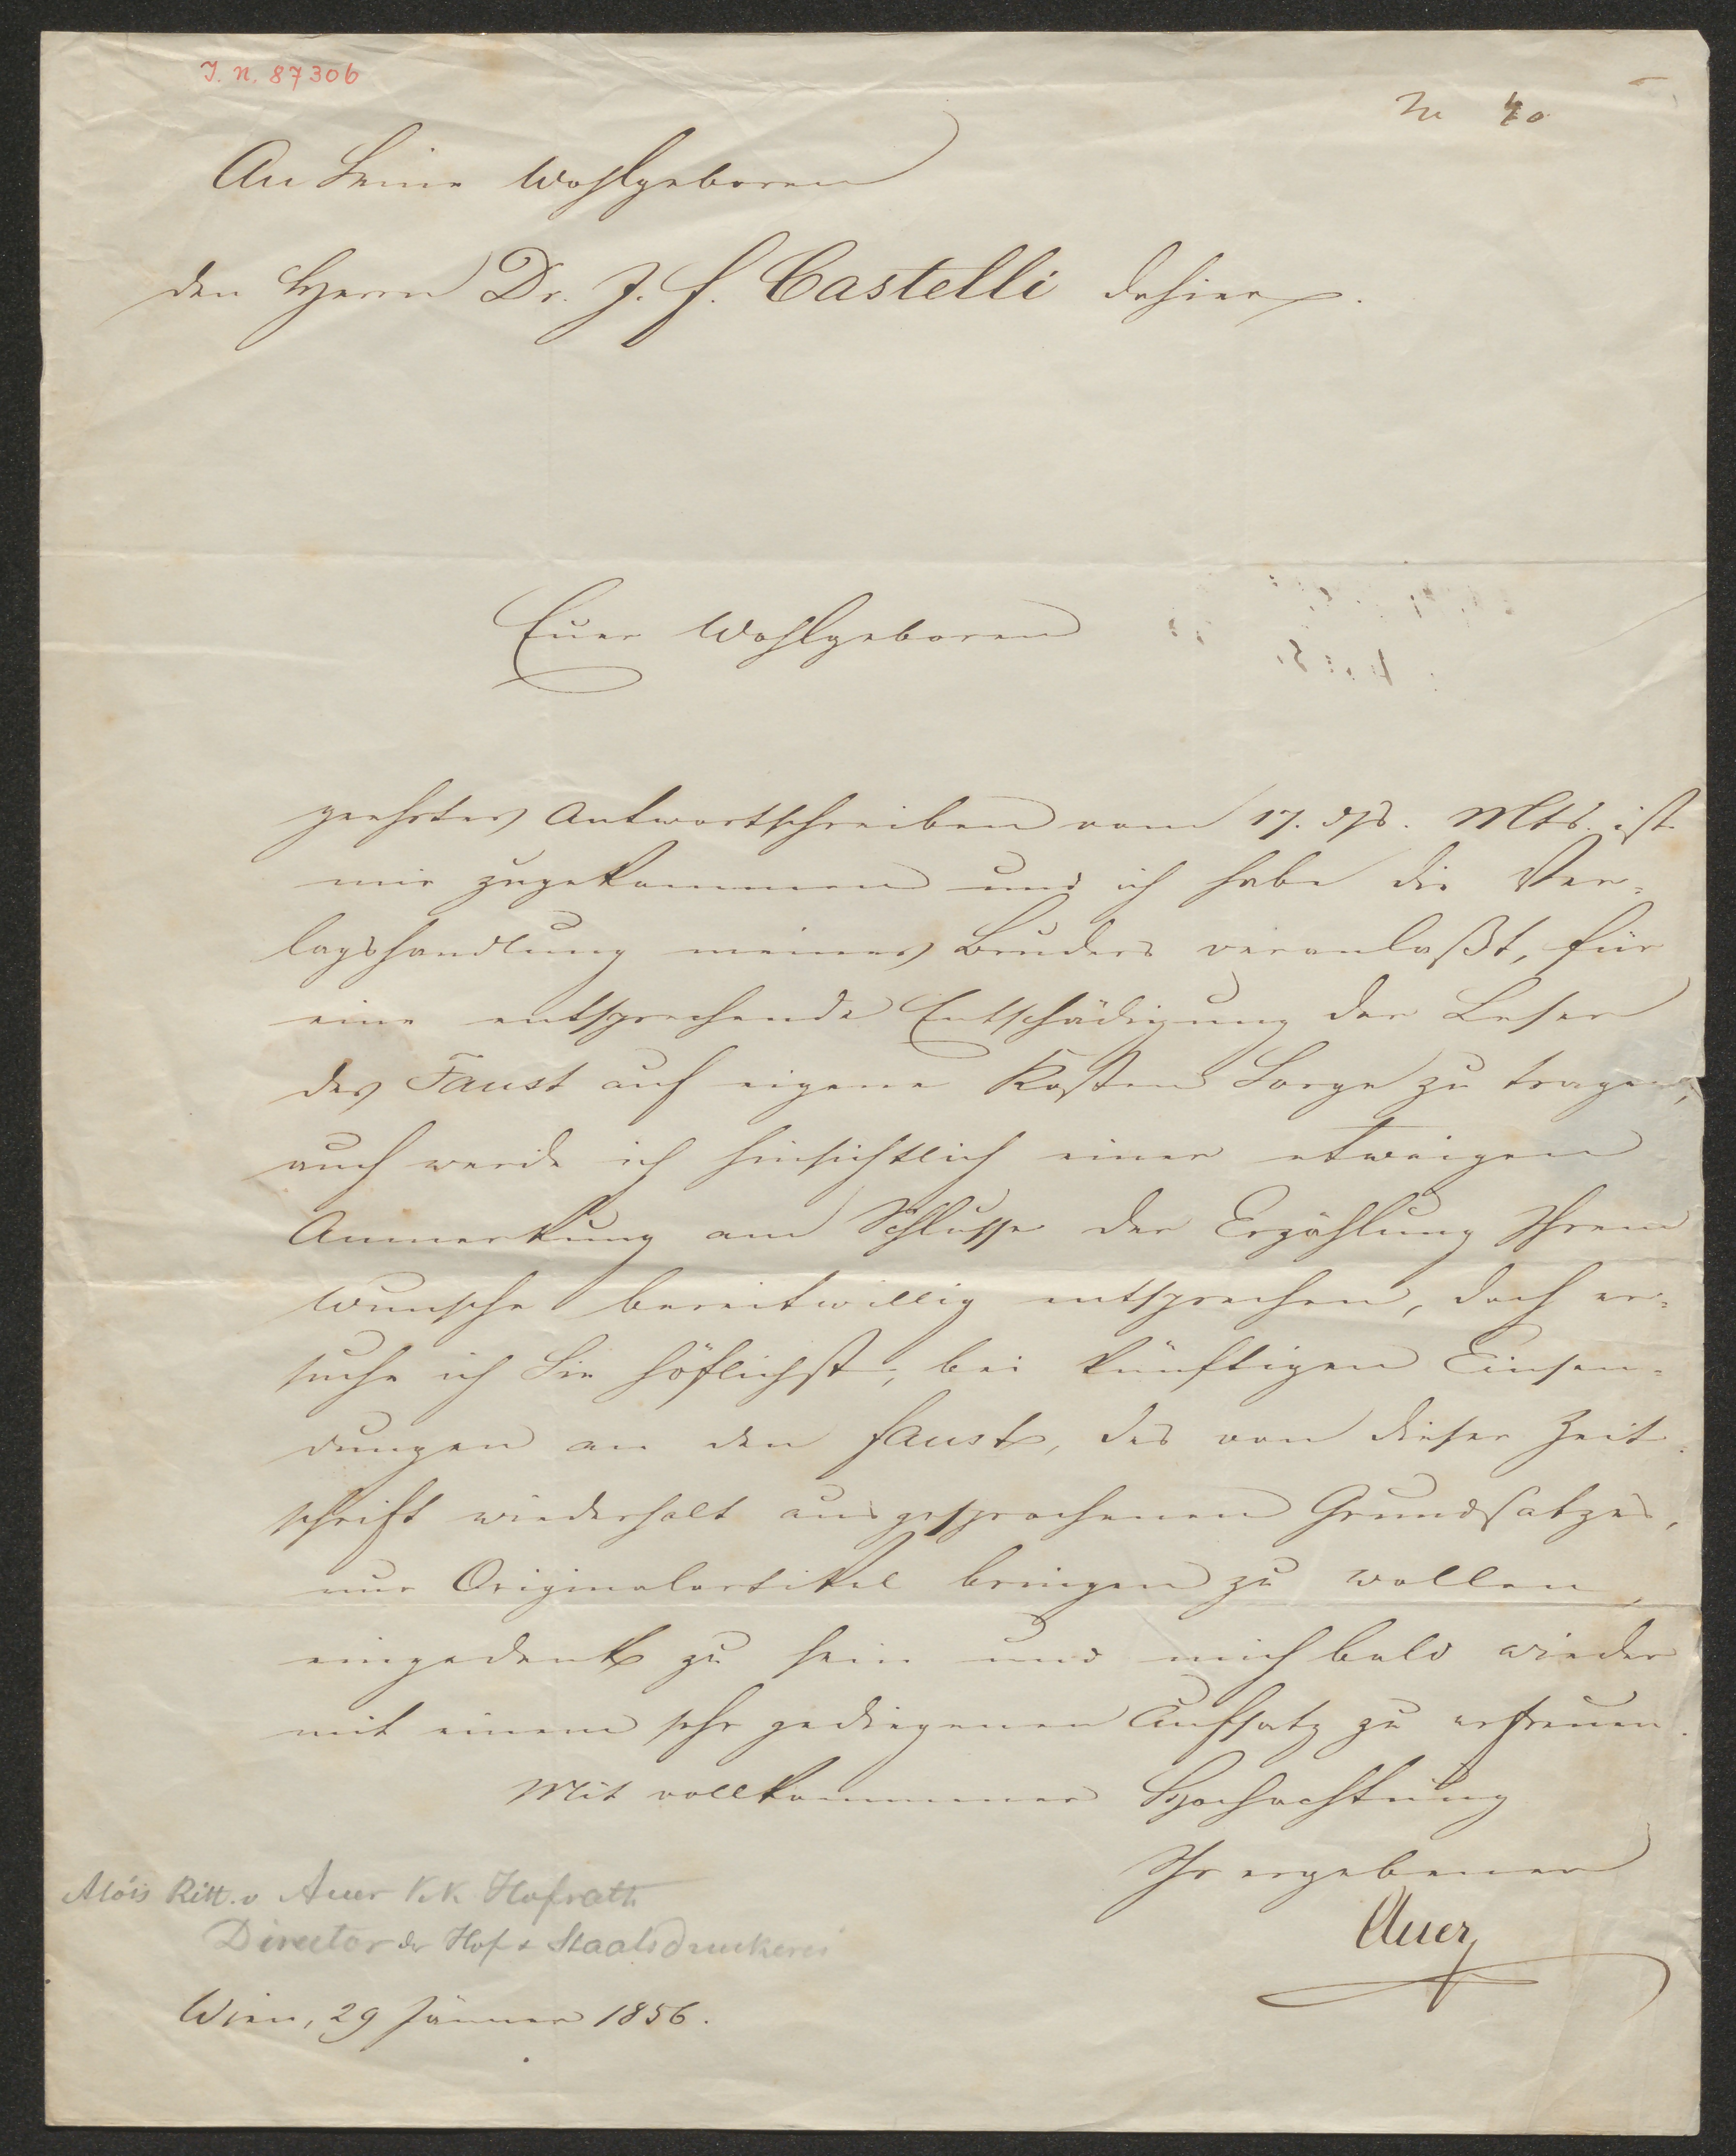 I. N. 87306
40
An Seine Wohlgeboren
den Herrn Dr. J. F. Castelli dahier.
Euer Wohlgeboren
geehrtes Antwortschreiben vom 17. dß. Mts. ist
mir zugekommen und ich habe die Ver-
lagshandlung meines Bruders veranlaßt, für
eine entsprechende Entschädigung der Leser
des Faust auf eigene Kosten Sorge zu tragen,
auch werde ich hinsichtlich einer etwaigen
Anmerkung am Schlusse der Erzählung Ihrem
Wunsche bereitwillig entsprechen, doch er-
suche ich Sie höflichst, bei künftigen Einsen-
dungen an den Faust, des von dieser Zeit-
schrift wiederholt ausgesprochenen Grundsatzes,
nur Originalartikel bringen zu wollen,
eingedenk zu sein und mich bald wieder
mit einem sehr gediegenen Aufsatz zu erfreuen.
Mit vollkommener Hochachtung
Ihr ergebener
Auer
Alois Ritt. v Auer K. K. Hofrath
Director der Hof & Staatsdruckerei
Wien, 29 Jänner 1856.